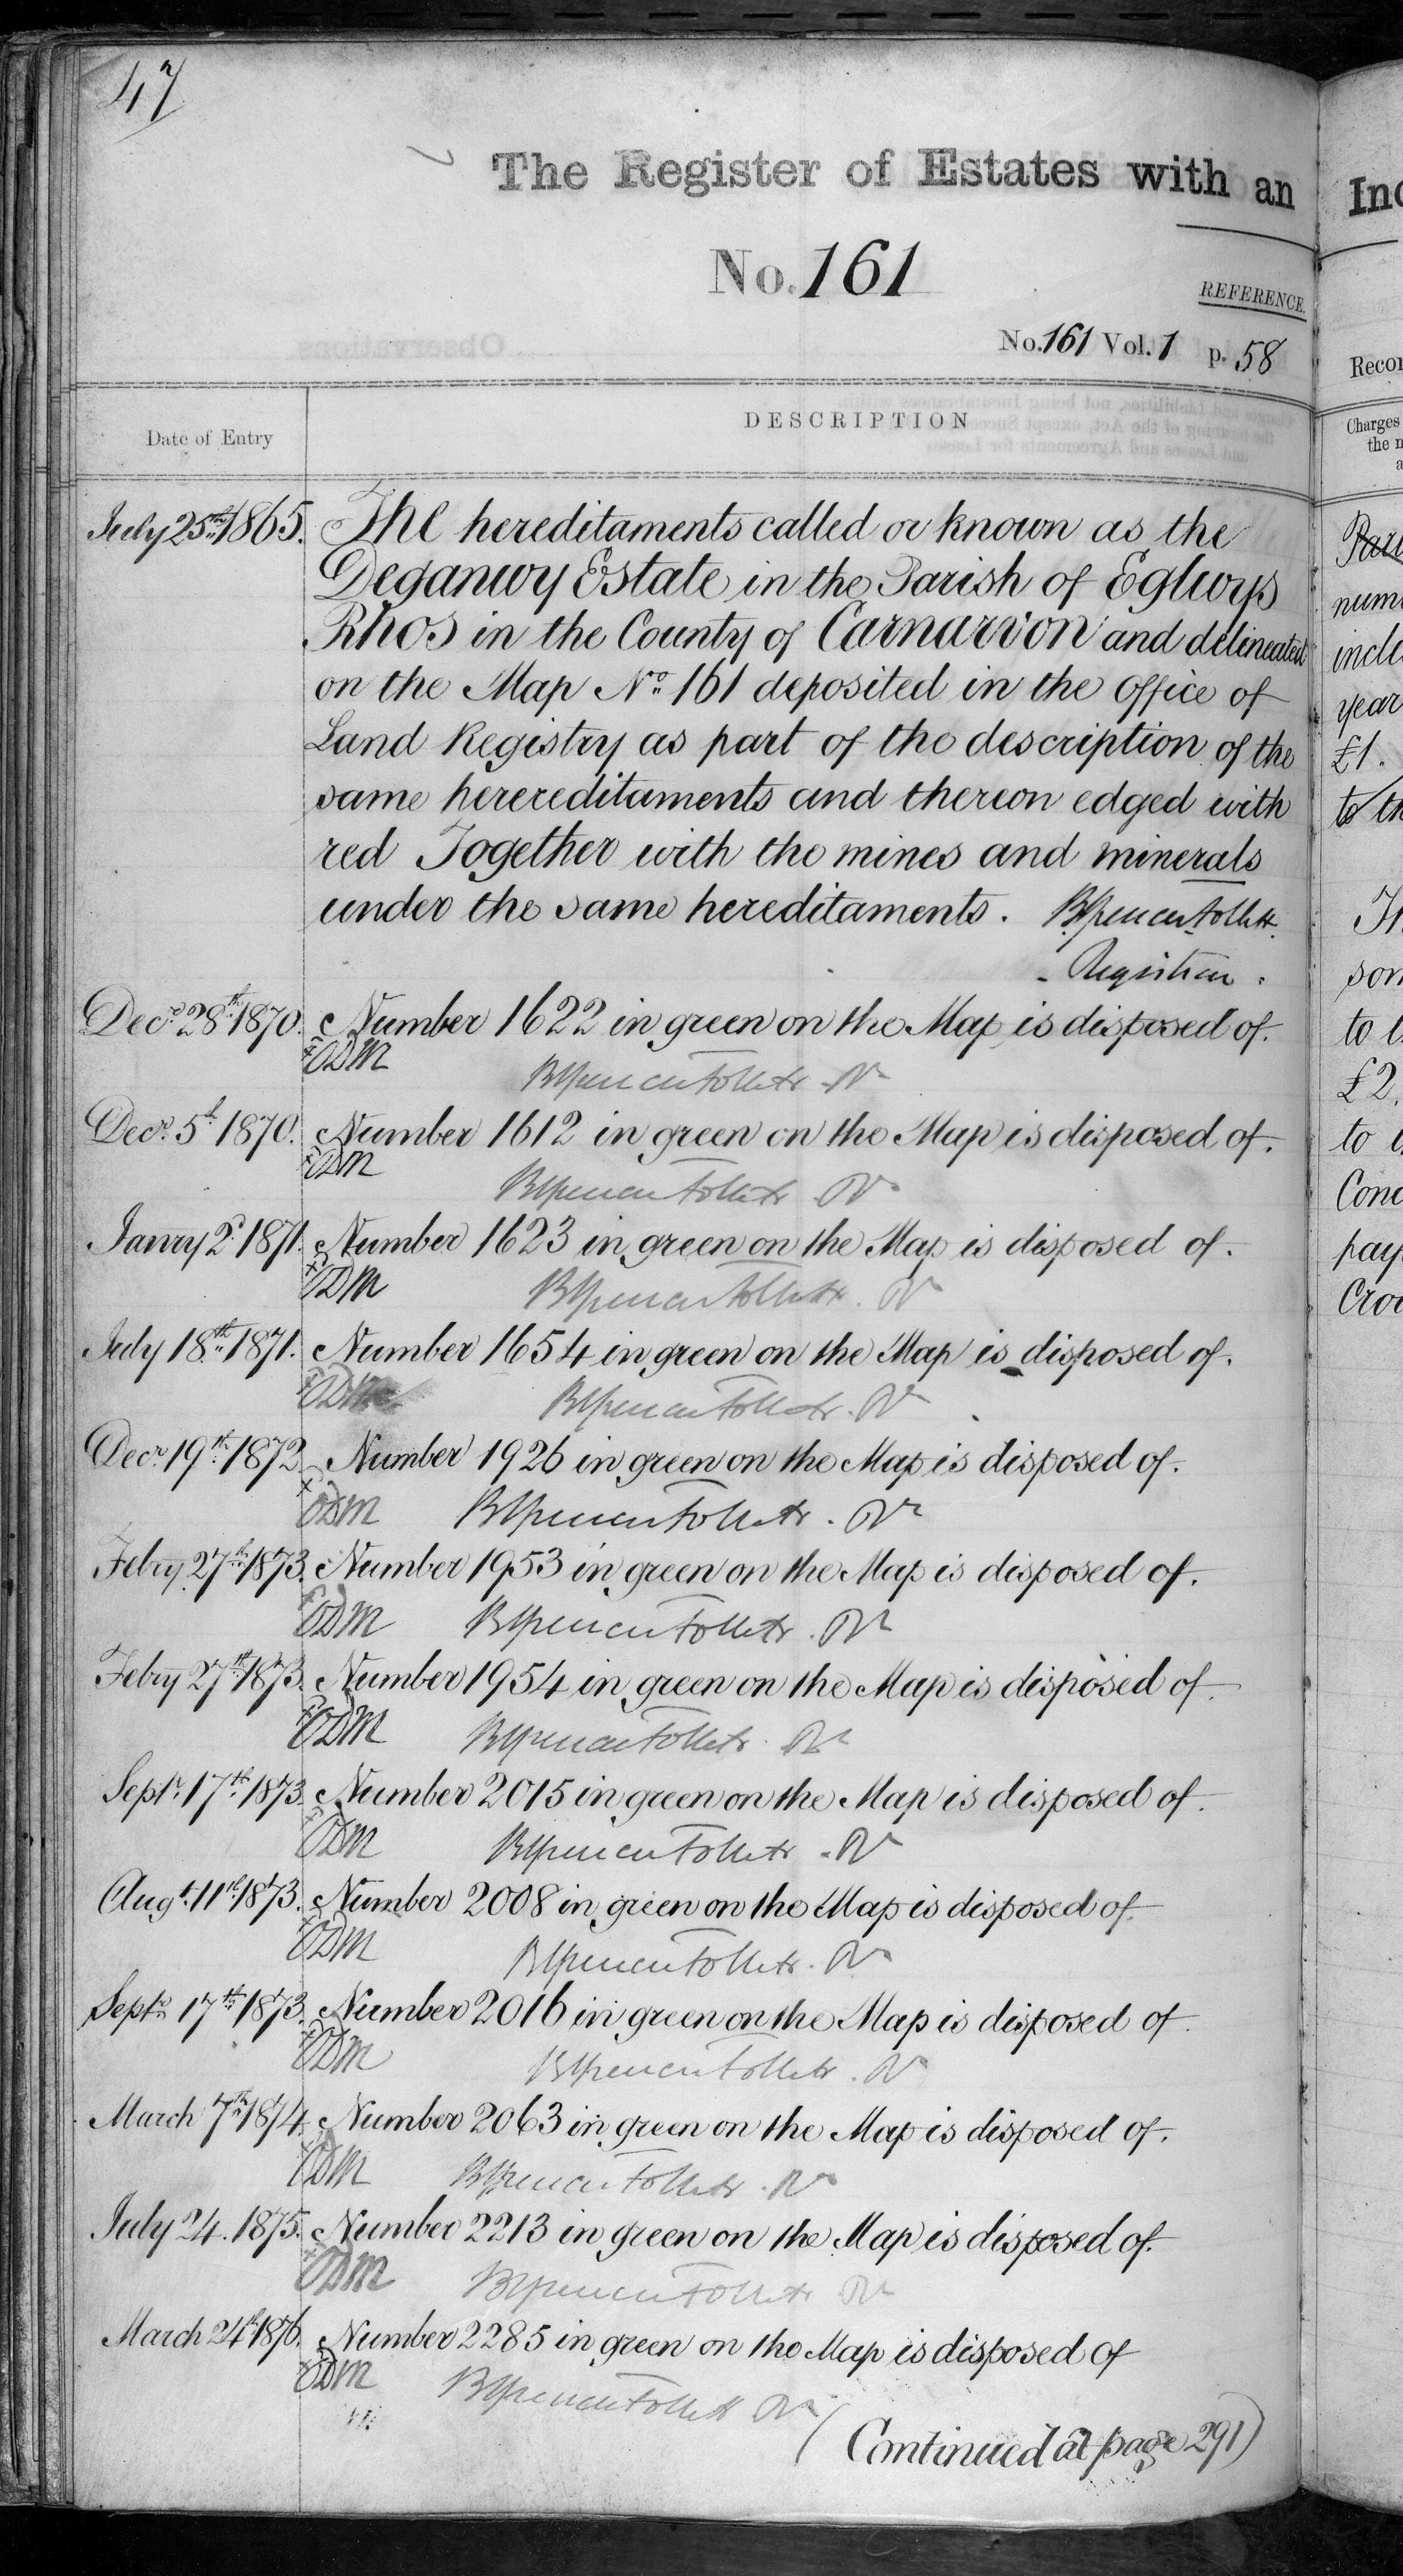 47
The Register of Estates with an
No. 161
REFERENCE.
No. 161 Vol. 1 p. 58
Date of Entry
DESCRIPTION
July 25th 1865. The hereditaments called or known as the
Deganwy Estate in the Parish of Eglwys
Rhos in the County of Carnarvon and delineated
on the Map No. 161 deposited in the Office of
Land Registry as part of the description of the
same herereditaments and thereon edged with
red Together with the mines and minerals
under the same hereditaments. B Spencer Follett.
Registrar.
Decr. 28th 1870. Number 1622 in green on the Map is disposed of.
ODM BSpencer Follett. Rr
Decr. 5th 1870. Number 1612 in green on the Map is disposed of.
ODM BSpencer Follett. Rr
Janry 2d. 1871. Number 1623 in green on the Map is disposed of.
ODM BSpencer Follett. Rr
July 18th 1871. Number 1654 in green on the Map is disposed of.
ODM BSpencer Follett. Rr
Decr. 19th 1872. Number 1926 in green on the Map is disposed of.
ODM BSpencer Follett. Rr
Febry 27th 1873. Number 1953 in green on the Map is disposed of.
ODM BSpencer Follett. Rr
Febry 27th 1873. Number 1954 in green on the Map is disposed of.
ODM BSpencer Follett. Rr
Septr. 17th 1873. Number 2015 in green on the Map is disposed of.
ODM BSpencer Follett. Rr
Augt. 11th 1873. Number 2008 in green on the Map is disposed of.
ODM BSpencer Follett. Rr
Septr. 17th 1873. Number 2016 in green on the Map is disposed of.
ODM BSpencer Follett. Rr
March 7th 1874. Number 2063 in green on the Map is disposed of.
ODM BSpencer Follett. Rr
July 24. 1875. Number 2213 in green on the Map is disposed of.
ODM BSpencer Follett Rr
March 24th 1876. Number 2285 in green on the Map is disposed of
ODM BSpencer Follett Rr
(Continued at page 291)
Charges
the
£1.
to th
£2.
to
pay